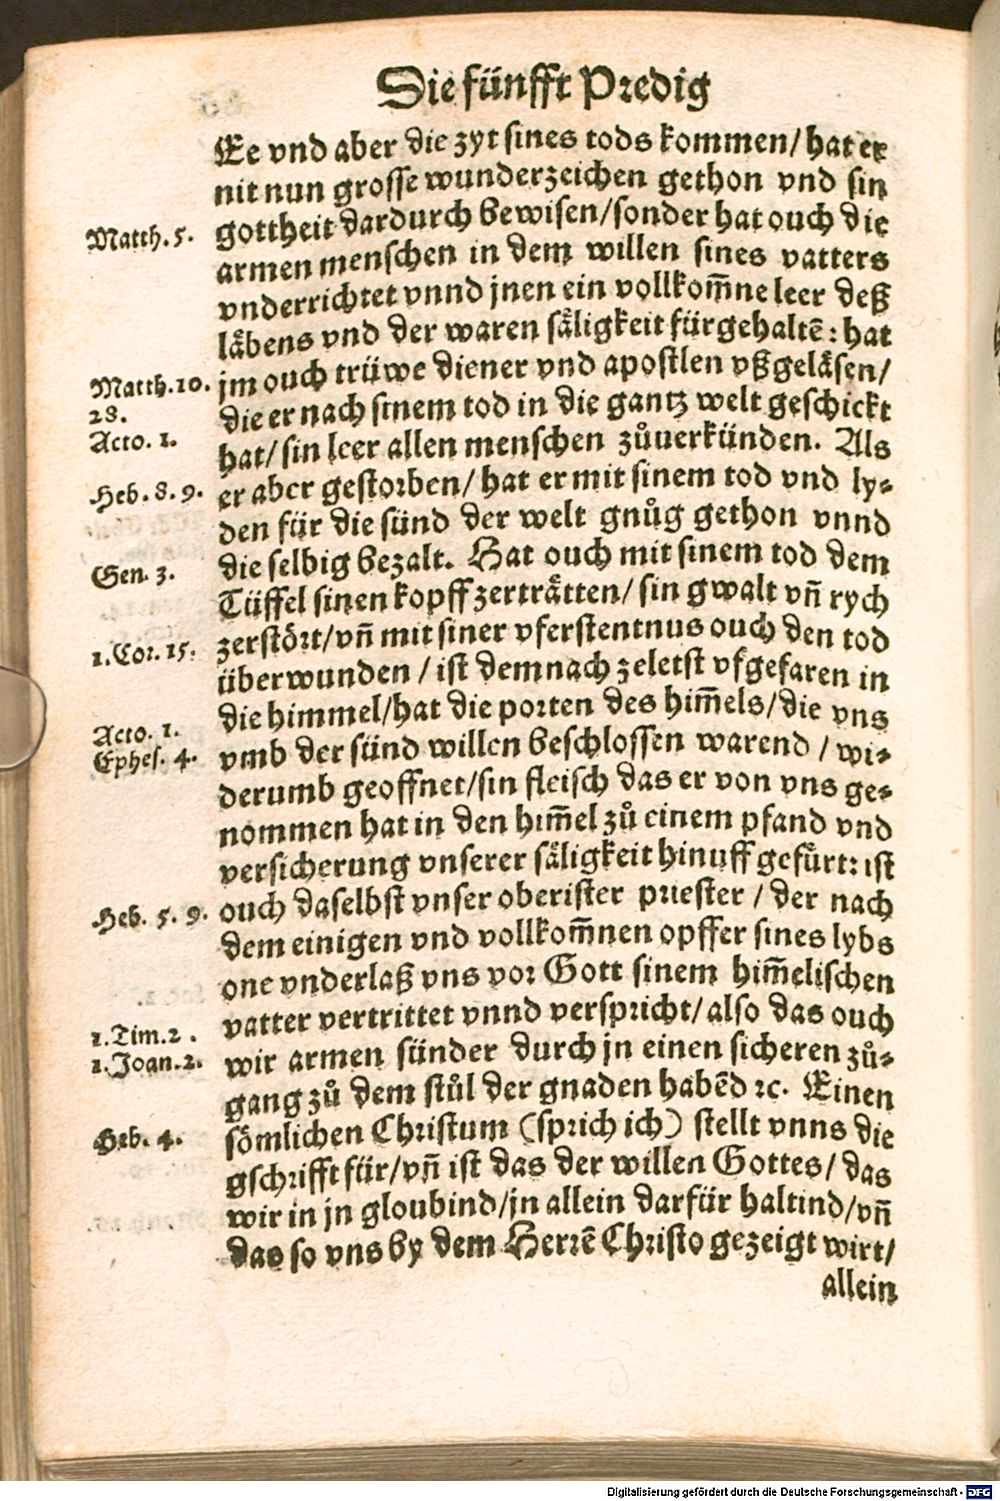 Die fünfft Predig
Ee vnd aber die zyt sines tods kommen/ hat er
nit nun grosse wunderzeichen gethon vnd sin
Matth. 5. gottheit dardurch bewisen/sonder hat ouch die
armen menschen in dem willen sines vatters
vnderrichtet vnnd jnen ein vollkom̄ne leer deß
laͤbens vnd der waren saͤligkeit fürgehaltē: hat
Matth.10. jm ouch trüwe diener vnd apostlen vßgelaͤsen/
28. die er nach sinem tod in die gantz welt geschickt
Acto. 1. hat/ sin leer allen menschen zůuerkünden. Als
Heb. 8. 9. er aber gestorben/ hat er mit sinem tod vnd ly⸗
den für die sünd der welt gnůg gethon vnnd
Gen. 3. die selbig bezalt. Hat ouch mit sinem tod dem
Tüffel sinen kopff zertraͤtten/ sin gwalt vn̄ rych
1.Cor. 15. zerstoͤrt/vn̄ mit siner vferstentnus ouch den tod
überwunden / ist demnach zeletst vfgefaren in
Acto. 1. die himmel/hat die porten des him̄els/die vns
Ephes. 4. vmb der sünd willen beschlossen warend / wi⸗
derumb geoffnet/sin fleisch das er von vns ge⸗
nommen hat in den him̄el zů einem pfand vnd
versicherung vnserer saͤligkeit hinuff gefürt: ist
Heb. 5. 9. ouch daselbst vnser oberister priester / der nach
dem einigen vnd vollkom̄nen opffer sines lybs
one vnderlaß vns vor Gott sinem him̄elischen
1.Tim.2. vatter vertrittet vnnd verspricht/ also das ouch
1.Joan.2. wir armen sünder durch jn einen sicheren zů⸗
gang zů dem stůl der gnaden habēd ꝛc. Einen
Heb. 4. soͤmlichen Christum (sprich ich) stellt vnns die
gschrifft für/vn̄ ist das der willen Gottes/ das
wir in jn gloubind/jn allein darfür haltind/vn̄
das so vns by dem Herrē Christo gezeigt wirt/
allein
Digitalisierung gefördert durch die Deutsche Forschungsgemeinschaft - DFG